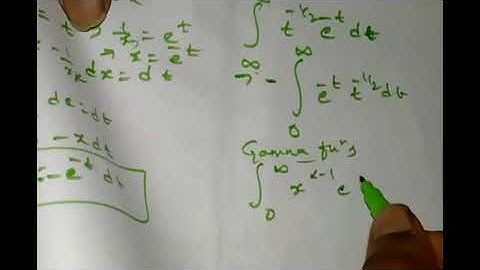 1/x = e^t
x = e^-t
dx = dt
dt
- x dt
= - e^-t dt
∫ t^-1/2 e^-t dt
- ∫_0^∞ e^-t t^-1/2 dt
Gamma fun's
∫_0^∞ x^α-1 e